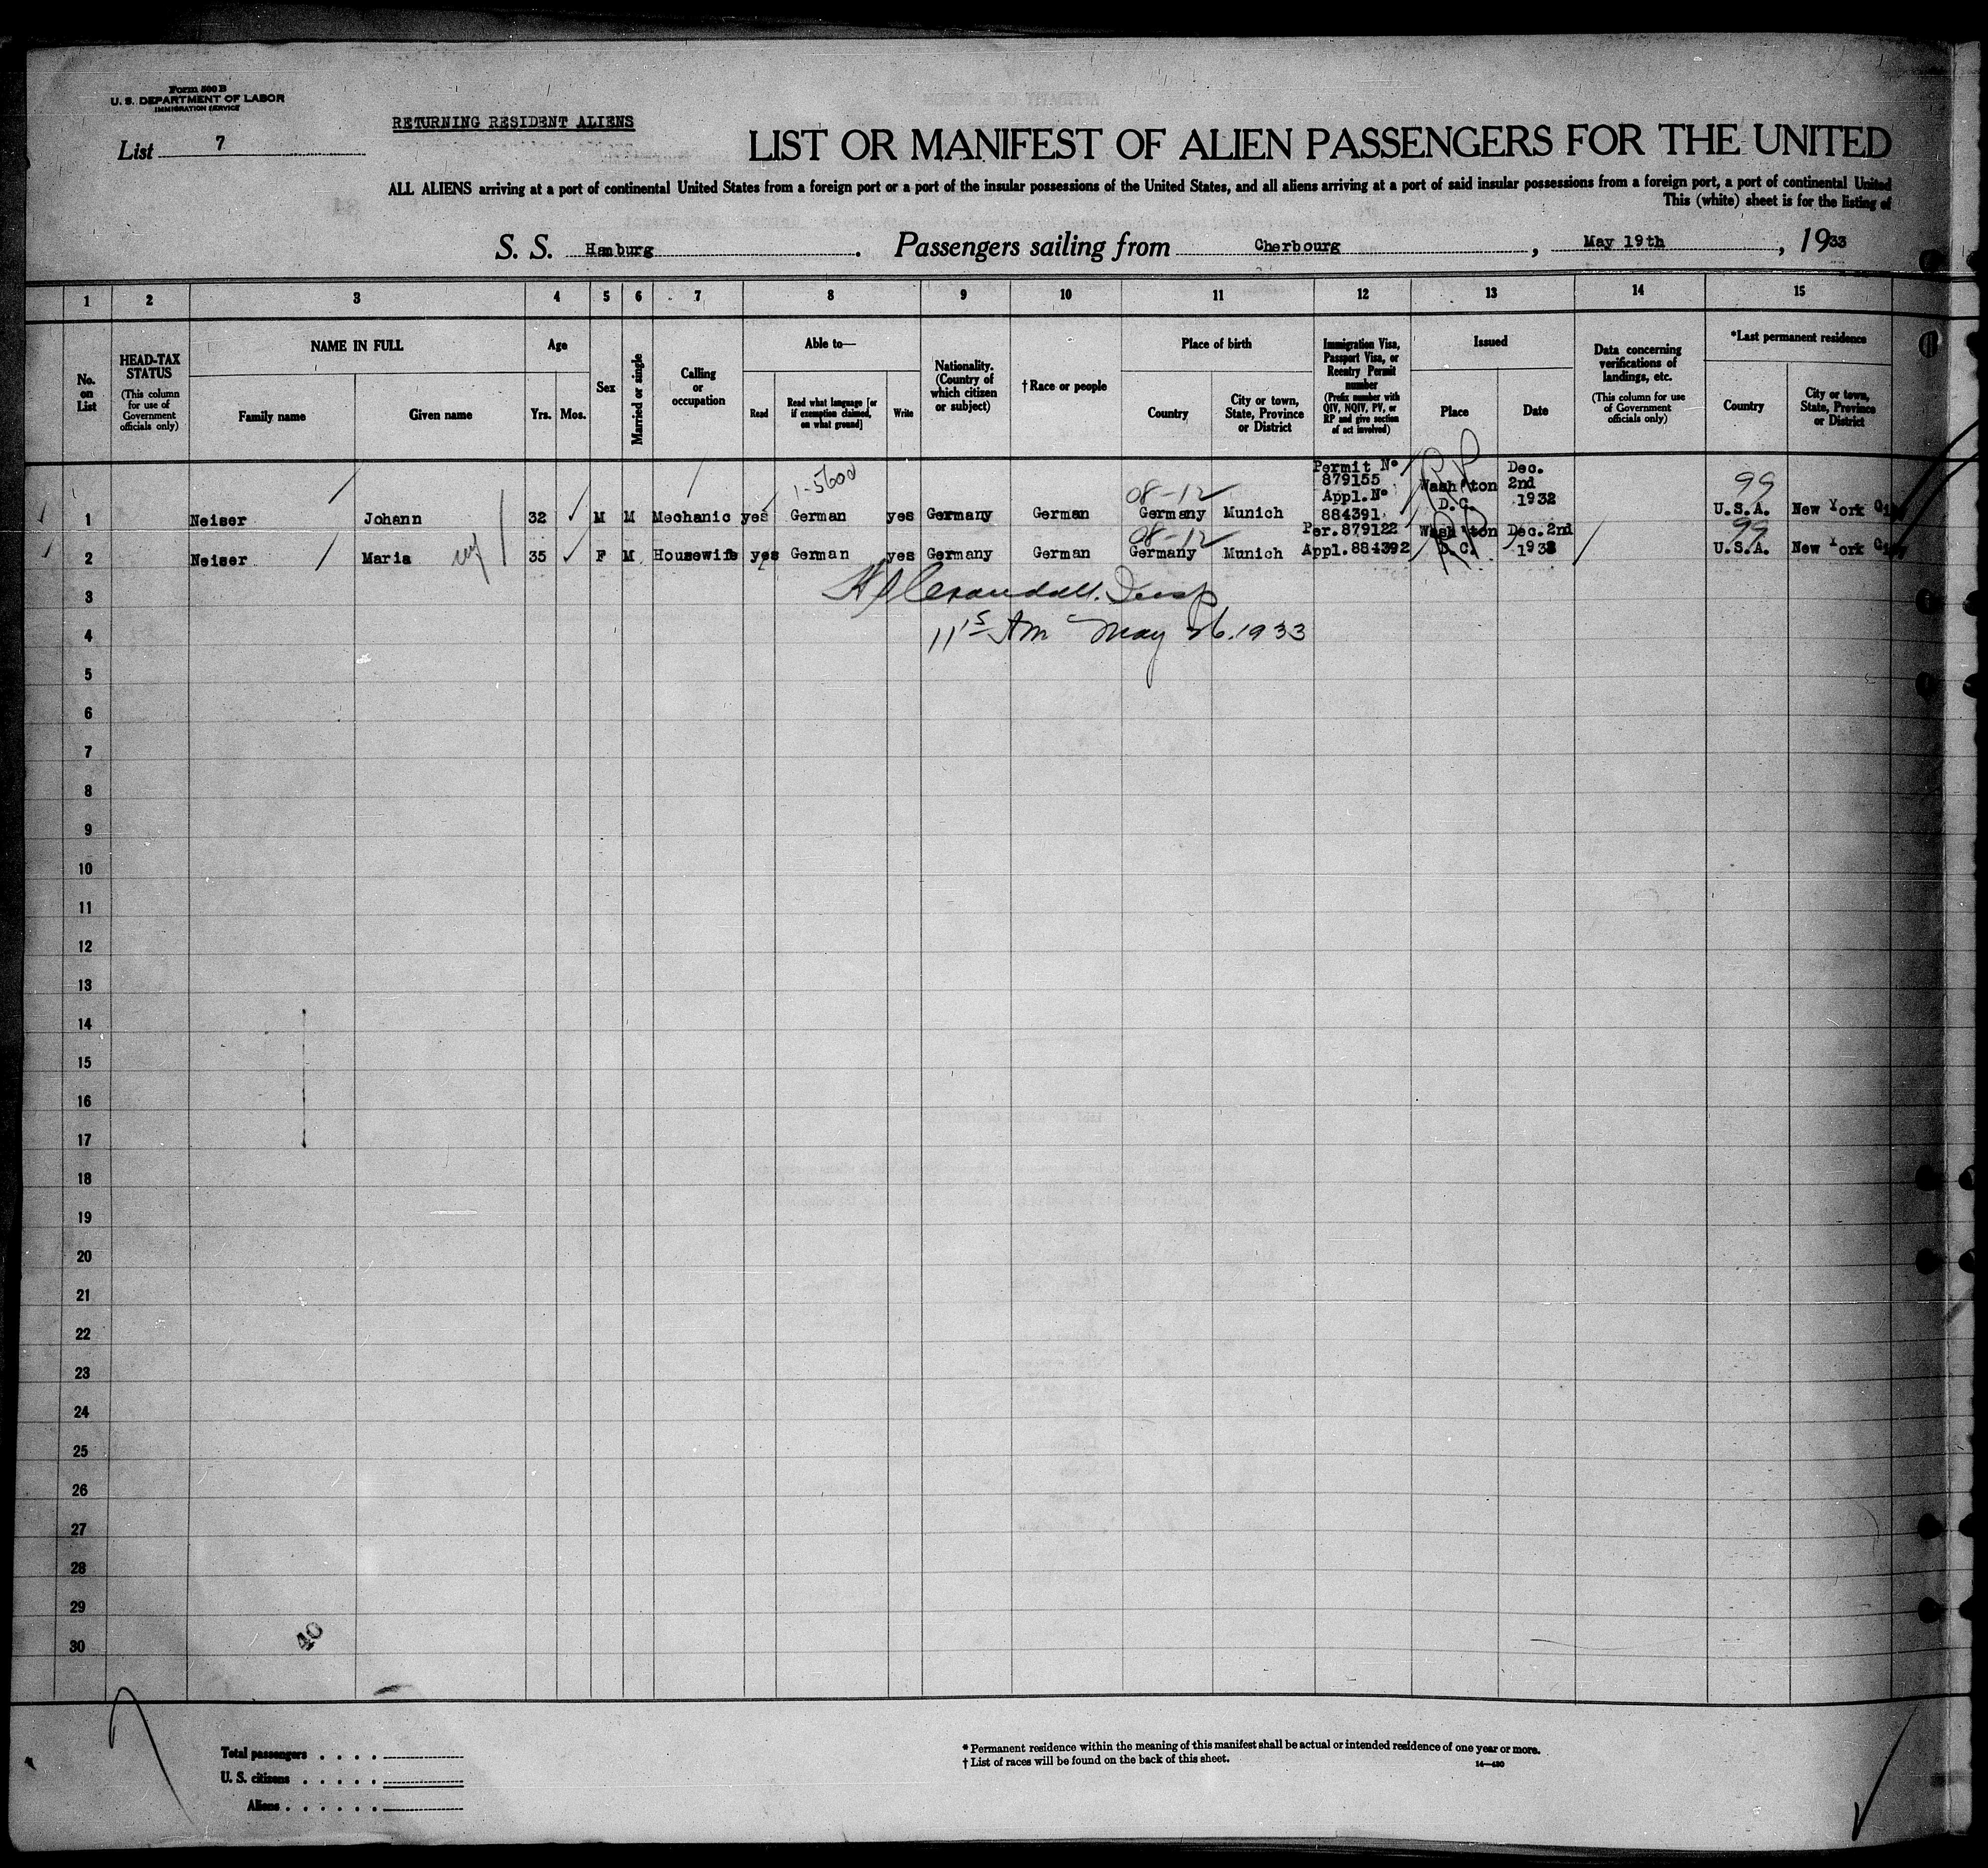 Form 500 B
U. S. DEPARTMENT OF LABOR
IMMIGRATION SERVICE
List 7
RETURNING RESIDENT ALIENS
LIST OR MANIFEST OF ALIEN PASSENGERS FOR THE UNITED
ALL ALIENS arriving at a port of continental United States from a foreign port or a port of the insular possessions of the United States, and all aliens arriving at a port of said insular possessions from a foreign port, a port of continental United
This (white) sheet is for the listing of
S. S. Hamburg. Passengers sailing from Cherbourg, May 19th, 1933
1 2 3 4 5 6 7 8 9 10 11 12 13 14 15
No. on List
HEAD-TAX STATUS
(This column for use of Government officials only)
NAME IN FULL
Family name
Given name
Age
Yrs. Mos.
Sex
Married or single
Calling or occupation
Able to—
Read
Read what language [or if exemption claimed, on what ground]
Write
Nationality. (Country of which citizen or subject)
†Race or people
Place of birth
Country
City or town, State, Province or District
Immigration Visa, Passport Visa, or Reentry Permit number
(Prefix number with QIV, NQIV, PV, or RP and give section of act involved)
Issued
Place
Date
Data concerning verifications of landings, etc.
(This column for use of Government officials only)
*Last permanent residence
Country
City or town, State, Province or District
1-5600
08-12
99
1 Neiser Johann 32 M M Mechanic yes German yes Germany German Germany Munich Permit No 879155 Appl.No 884391 Wash'ton D.C. Dec. 2nd 1932 U.S.A. New York City
RP
08-12
99
2 Neiser Maria wf 35 F M Housewife yes German yes Germany German Germany Munich Per.879122 Appl.884392 Wash'ton D.C. Dec.2nd U.S.A. New York City
3
11 15 Am May 26. 1933
4
5
6
7
8
9
10
11
12
13
14
15
16
17
18
19
20
21
22
23
24
25
26
27
28
29
30
40
Total passengers . . . .
U. S. citizens . . . . .
Aliens . . . . . .
* Permanent residence within the meaning of this manifest shall be actual or intended residence of one year or more.
† List of races will be found on the back of this sheet.
14—430